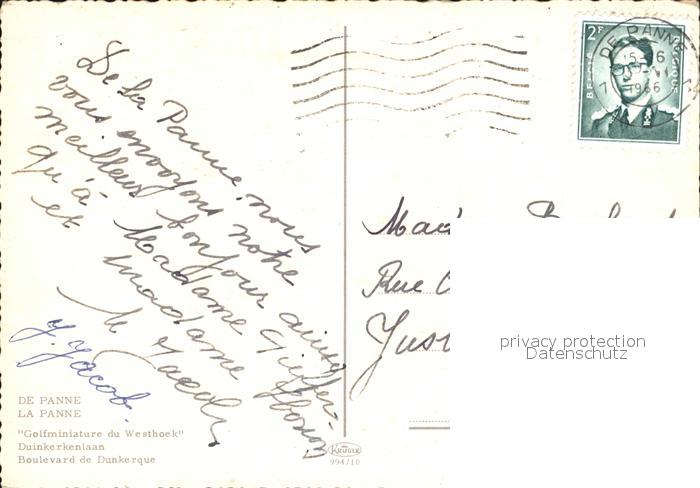 De La Panne, nous
vous envoyons notre
meilleur bonjour ainsi
qu'à Madame
et Madame
M Jacob
J. Jacob.
DE PANNE
LA PANNE
"Golfminiature du Westhoek"
Duinkerkenlaan
Boulevard de Dunkerque
KRUGER
994/10
2F
BELGIE
BELGIQUE
DE PANNE
15-6
1966
Rue
privacy protection
Datenschutz